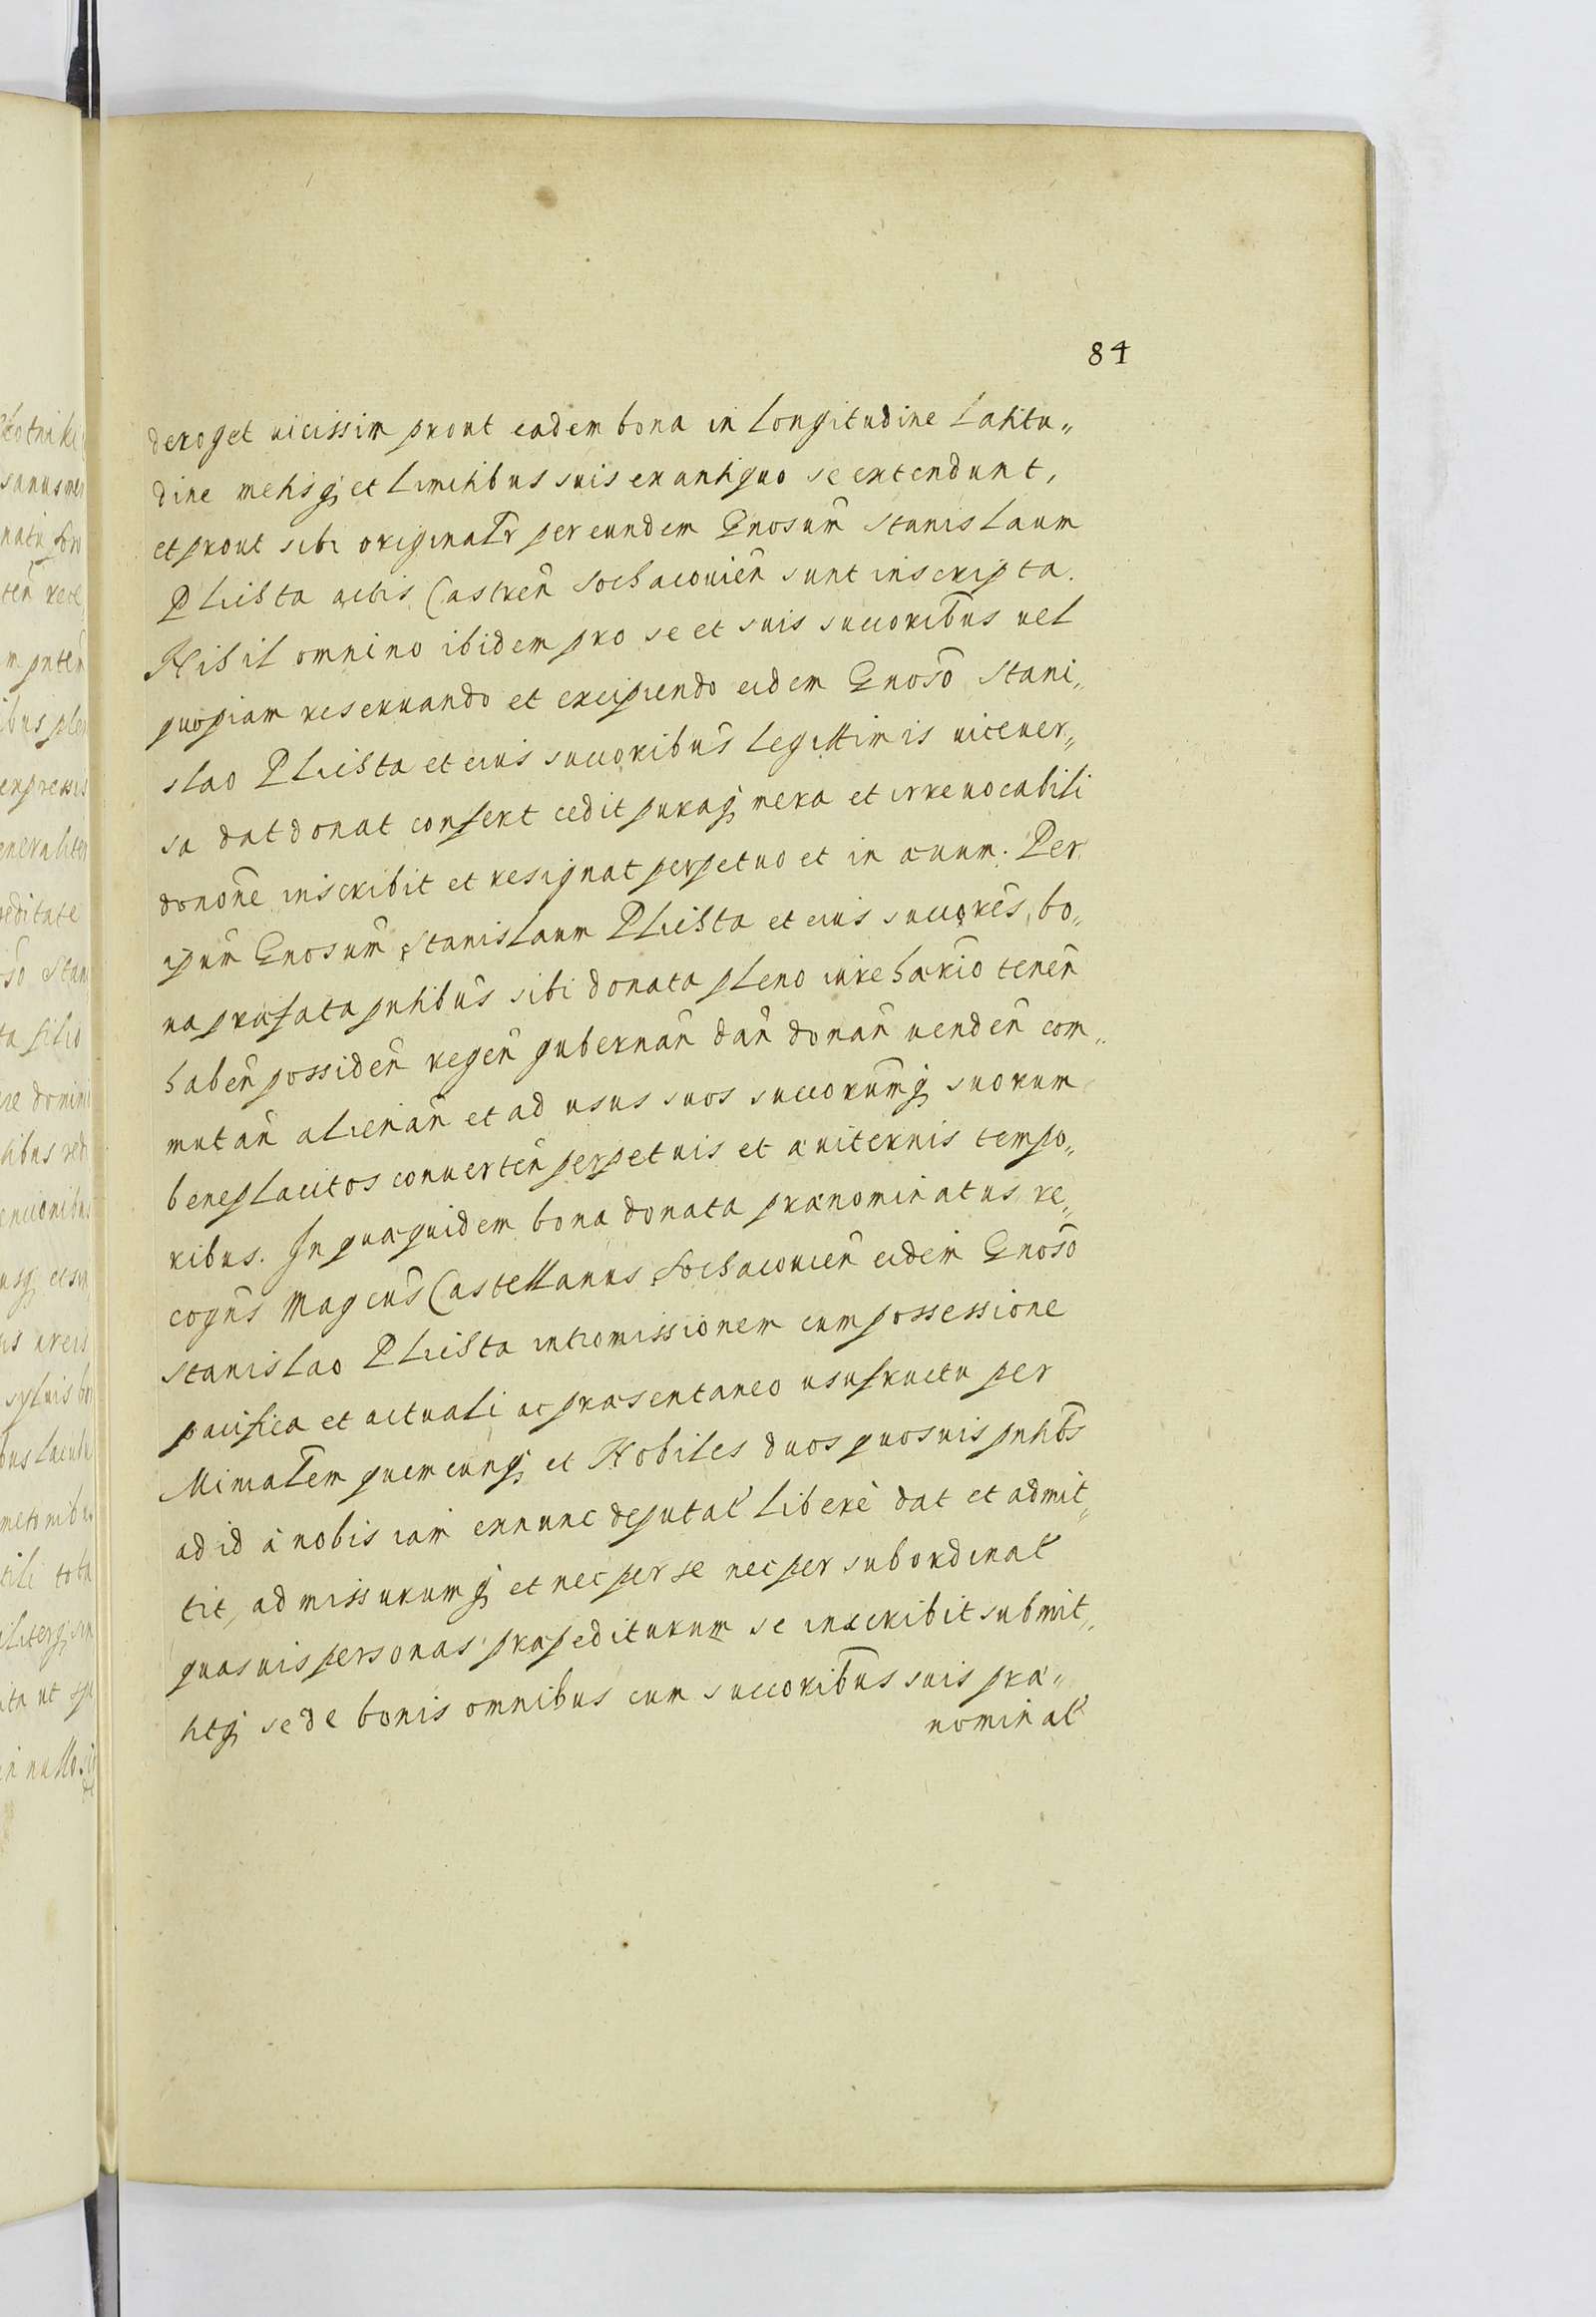 84
deroget uicissim prout eadem bona in longitudine latitu„
dine metisq; et limitibus suis ex antiquo se extendunt,
et prout sibi originalr̄ per eundem Gnosum̄ Stanislaum
Plichta actis Castren̄ Sochaceuien̄ sunt inscripta.
Nihil omnino ibidem pro se et suis succoribūs uel
quopiam reseruando et excipiendo eidem Gnosō Stani„
slao Plichta et eius succoribūs legittimis uiceuer„
sa dat donat confert cedit puraq; mera et irreuocabili
dononē inscribit et resignat perpetuo et in æuum. Per
ipum̄ Gnosum̄ Stanislaum Plichta et eius succorēs, bo„
na præfata pntibūs sibi donata pleno iure hærio tenen̄
haben̄ possiden̄ regen̄ gubernan̄ dan̄ donan̄ uenden̄ com„
mutan̄ alienan̄ et ad usus suos succorum̄q; suorum
beneplacitos conuerten̄ perpetuis et æuiternis tempo„
ribus. In quæquidem bona donata prænominatus re„
cogn̄s Magcūs Castellanus Sochaceuien̄ eidem Gnosō
Stanislao Plichta intromissionem cum possessione
pacifica et actuali ac præsentaneo usufructu per
Minialēm quemcunq; et Nobiles duos quosuis pntībs
ad id à nobis iam exnunc deputat̄ liberè dat et admit„
tit, admissurumq; et nec per se nec per subordinat̄
quasuis personas præpediturum se inscribit submit„
titq; se de bonis omnibus cum succoribūs suis præ„
nominat̄